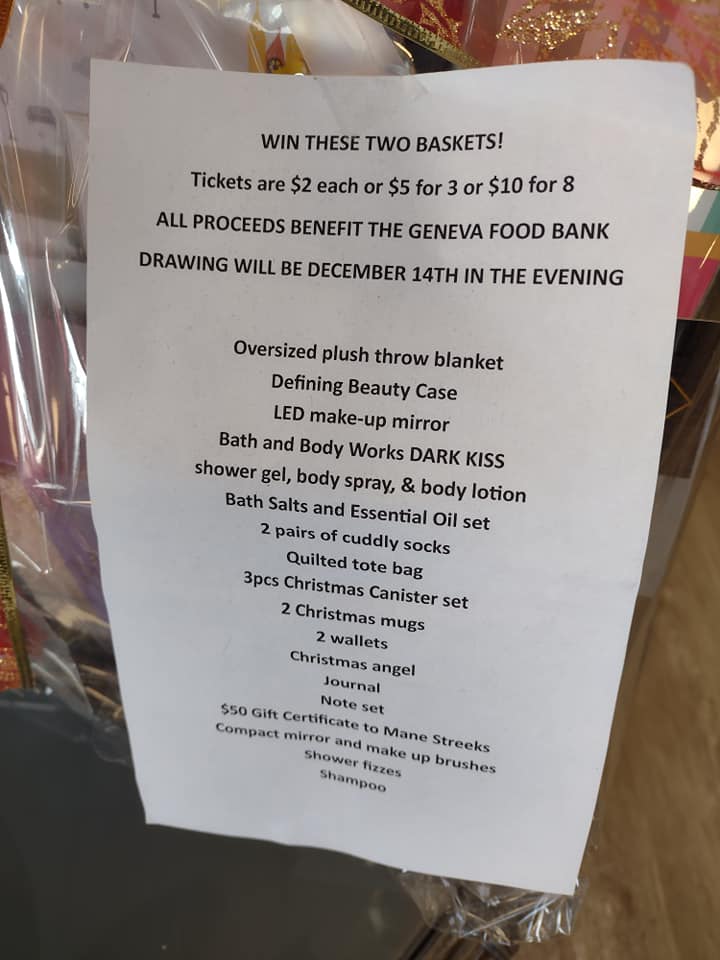 WIN THESE TWO BASKETS!
Tickets are $2 each or $5 for 3 or $10 for 8
ALL PROCEEDS BENEFIT THE GENEVA FOOD BANK
DRAWING WILL BE DECEMBER 14TH IN THE EVENING
Oversized plush throw blanket
Defining Beauty Case
LED make-up mirror
Bath and Body Works DARK KISS
shower gel, body spray, & body lotion
Bath Salts and Essential Oil set
2 pairs of cuddly socks
Quilted tote bag
3pcs Christmas Canister set
2 Christmas mugs
2 wallets
Christmas angel
Journal
Note set
$50 Gift Certificate to Mane Streeks
Compact mirror and make up brushes
Shower fizzes
Shampoo